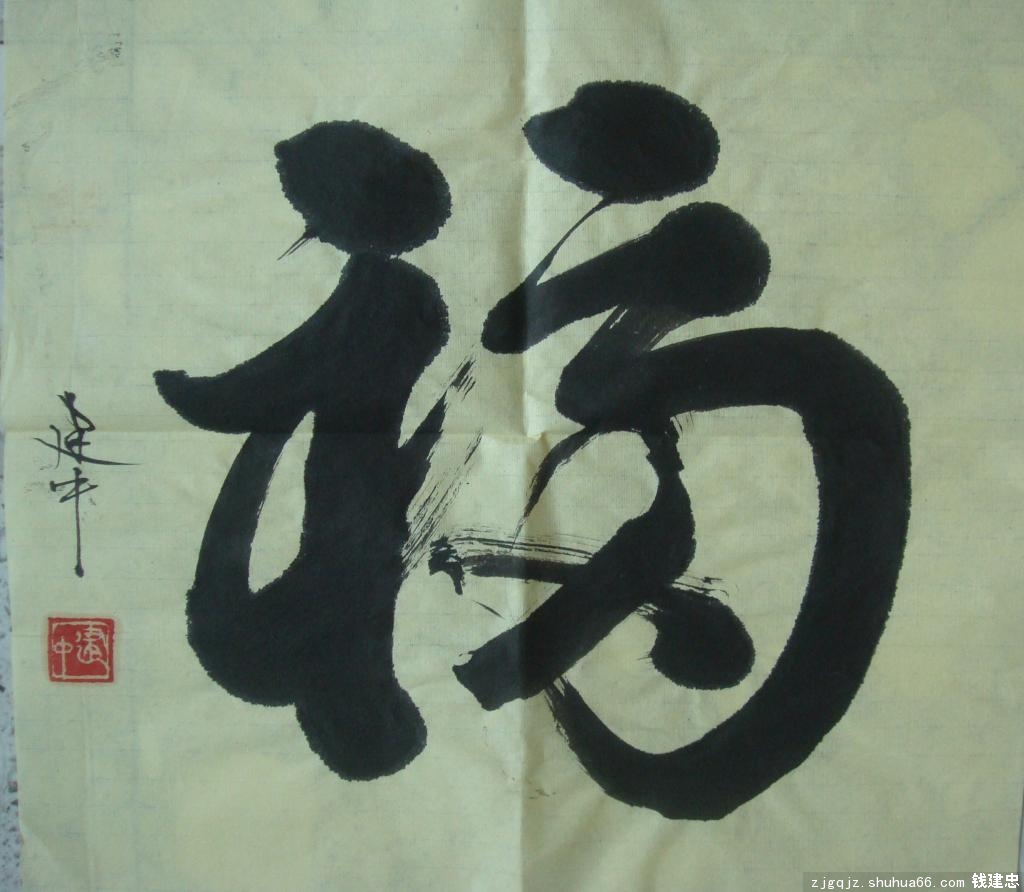 福
建中
建中
zjgqjz.shuhua66.com 钱建忠